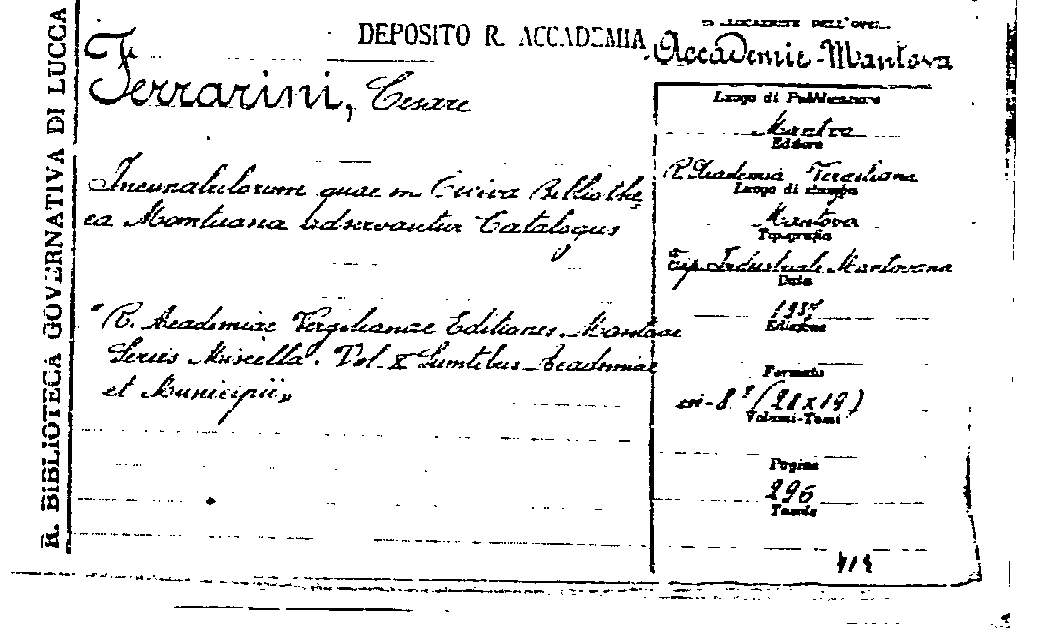 R. BIBLIOTECA GOVERNATIVA DI LUCCA
DEPOSITO R. ACCADEMIA
COLLOCAZIONE DELL'OPERA
Accademie-Mantova
Ferrarini, Cesare
Incunabulorum quae in Civica Bibliothe
ca Mantuana adservantur Catalogus
"R. Academiae Vergilianae Editiones Mantuae
Series Miscella. Vol. I Sumtibus Academiae
et Municipii"
Luogo di Pubblicazione
Mantova
Editore
R. Accademia Vergiliana
Luogo di stampa
Mantova
Tipografia
Tip. Industriale Mantovana
Data
1937
Edizione
Formato
in-8° (28x19)
Volumi-Tomi
Pagine
296
Tavole